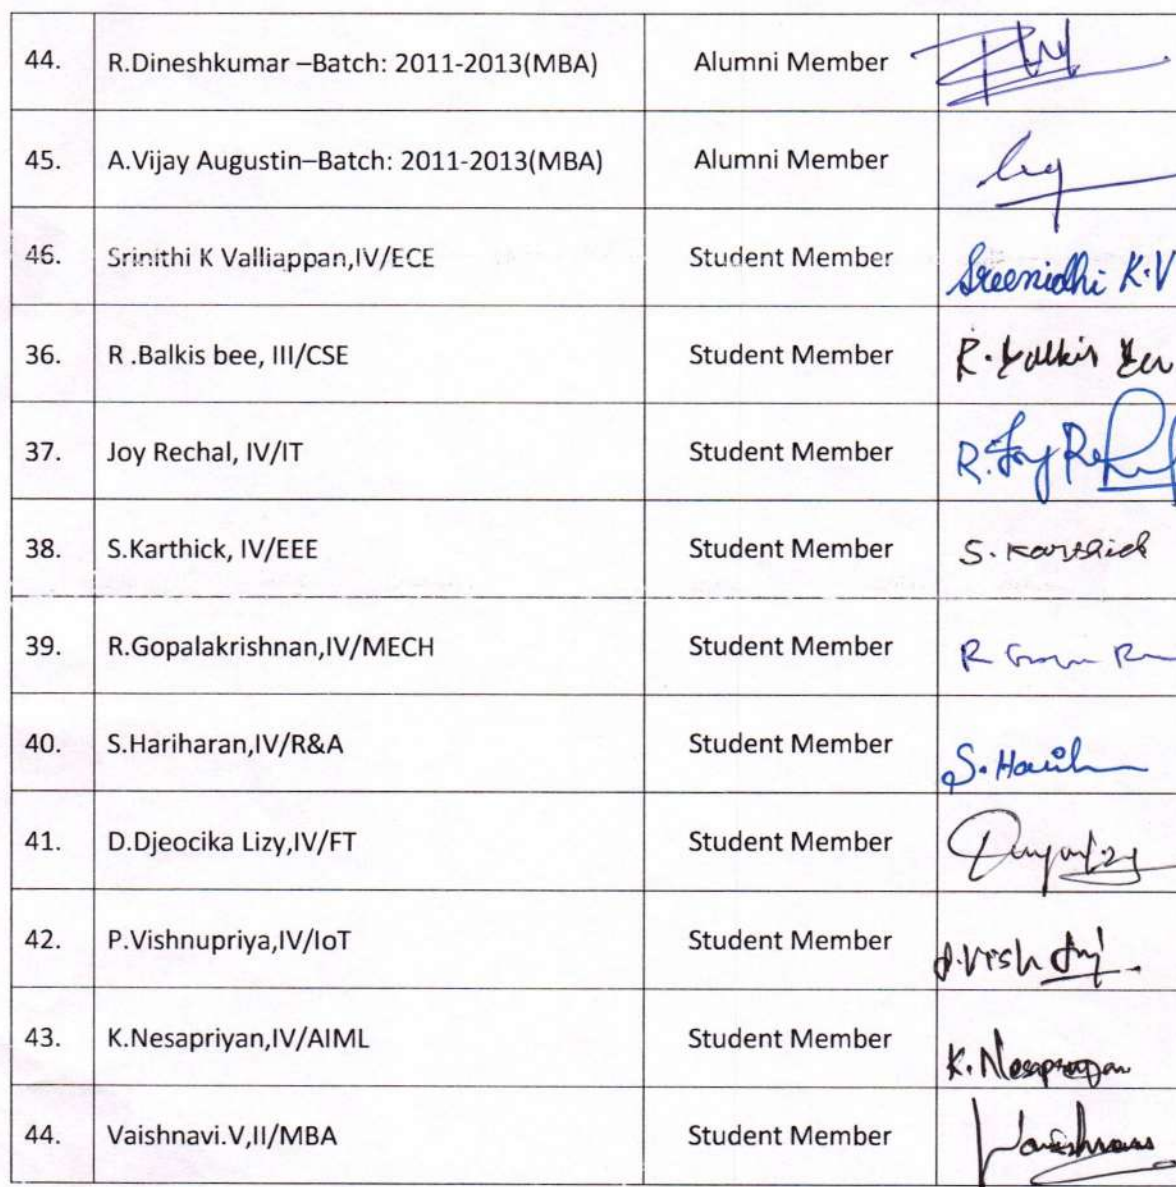 44. R.Dineshkumar –Batch: 2011-2013(MBA) Alumni Member
45. A.Vijay Augustin–Batch: 2011-2013(MBA) Alumni Member
46. Srinithi K Valliappan,IV/ECE Student Member Sreenidhi K.V
36. R .Balkis bee, III/CSE Student Member R. Balkis Bee
37. Joy Rechal, IV/IT Student Member R. Joy
38. S.Karthick, IV/EEE Student Member S. Karthick
39. R.Gopalakrishnan,IV/MECH Student Member R
40. S.Hariharan,IV/R&A Student Member S.
41. D.Djeocika Lizy,IV/FT Student Member
42. P.Vishnupriya,IV/IoT Student Member P.Vish
43. K.Nesapriyan,IV/AIML Student Member K. Nesapriyan
44. Vaishnavi.V,II/MBA Student Member